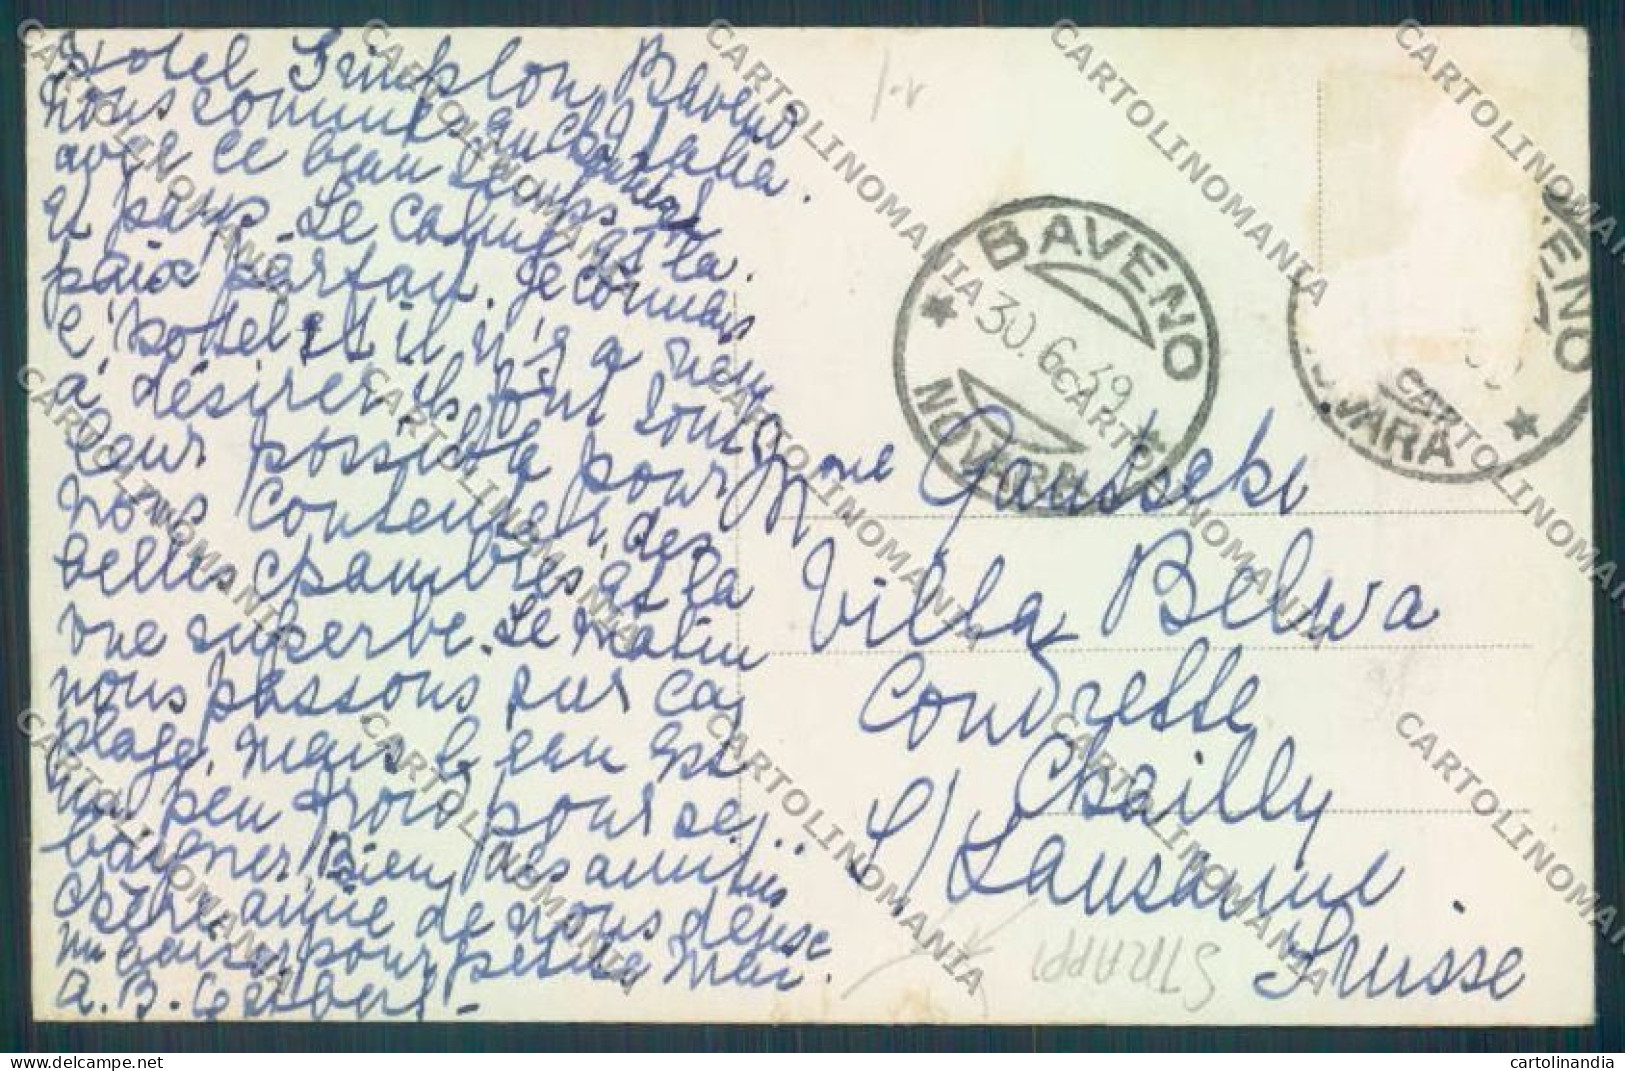 Hotel Simplon, Baveno
Italia.
nous sommes enchantés
avec ce beau temps et
pays. Le calme et la
paix partout. Je connais
l'hotel et il n'y a rien
à désirer. Ils font tout
leur possible pour
nous contenter, des
belles chambres, et la
vue superbe. Le matin
nous passons sur la
plage, mais l'eau est
un peu froid pour se
baigner. Bien des amitiés
chère amie de nous deux
un baiser pour petite
A. B.
Mme
Villa
Condrette
Chailly
s/ Lausanne
Suisse
BAVENO
30. 6. 39
NOVARA
VENO
VARA
1-v
STRAPPI
CARTOLINOMANIA
http://www.delcampe.net
cartolinandia